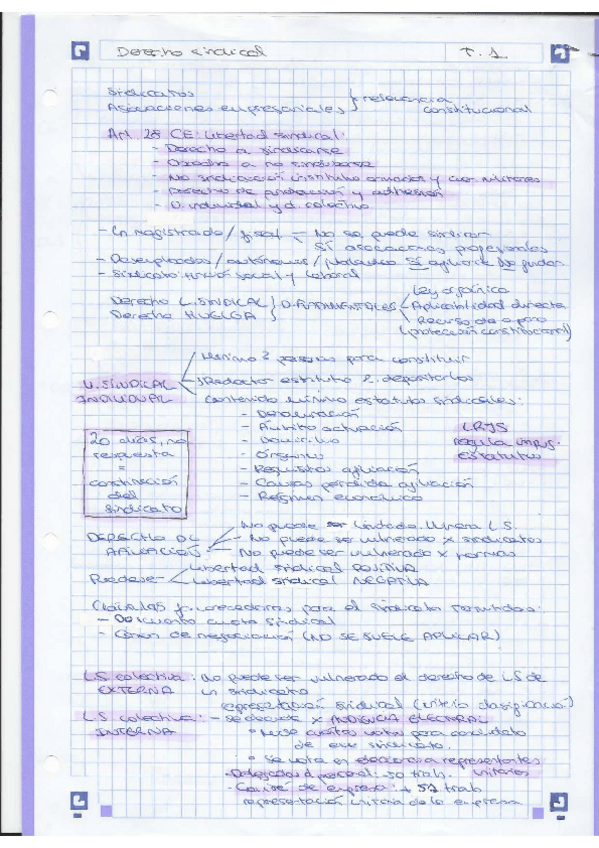 Derecho sindical T. 1
Sindicatos
Asociaciones empresariales } relevancia constitucional
Art. 28 CE: libertad sindical:
- Derecho a sindicarse
- Derecho a no sindicarse
- No sindicación institutos armados y cuer. militares
- Derecho de fundación y adhesión
- D. individual y d. colectivo
- Un magistrado / fiscal - No se puede sindicar
Sí asociaciones profesionales
- Desempleados / autónomos / jubilados Sí afiliarse No fundar
- Sindicato: función social y laboral
Derecho L. SINDICAL
Derecho HUELGA } D. FUNDAMENTALES
Ley orgánica
Aplicabilidad directa
Recurso de amparo
(protección constitucional)
L. SINDICAL INDIVIDUAL
Mínimo 2 personas para constituir
Redactar estatuto 2. depositarlos
Contenido mínimo estatutos sindicales:
- Denominación
- Ámbito actuación
- Domicilio
- Órganos
- Requisitos afiliación
- Causas perdida afiliación
- Régimen económico
LRJS
regula impug.
estatutos
20 días, no
respuesta
=
constitución
del
sindicato
DERECHO DE AFILIACIÓN
No puede ser limitado. Vulnera L.S.
- No puede ser vulnerado x sindicatos
- No puede ser vulnerado x normas
Libertad sindical POSITIVA
Libertad sindical NEGATIVA
Cláusulas para el sindicato permitidas:
- Descuento cuota sindical
- Canon de negociación (NO SE SUELE APLICAR)
L.S. colectiva EXTERNA : No puede ser vulnerado el derecho de LS de
un sindicato
representación sindical (criterio designación)
L.S. colectiva INTERNA : - se decide x AUDIENCIA ELECTORAL
votos para candidato
de ese sindicato.
• Se vota en representantes
unitarios
- Delegados d personal: -50 trab.
- Comité de empresa: + 51 trab
representación unitaria de la empresa